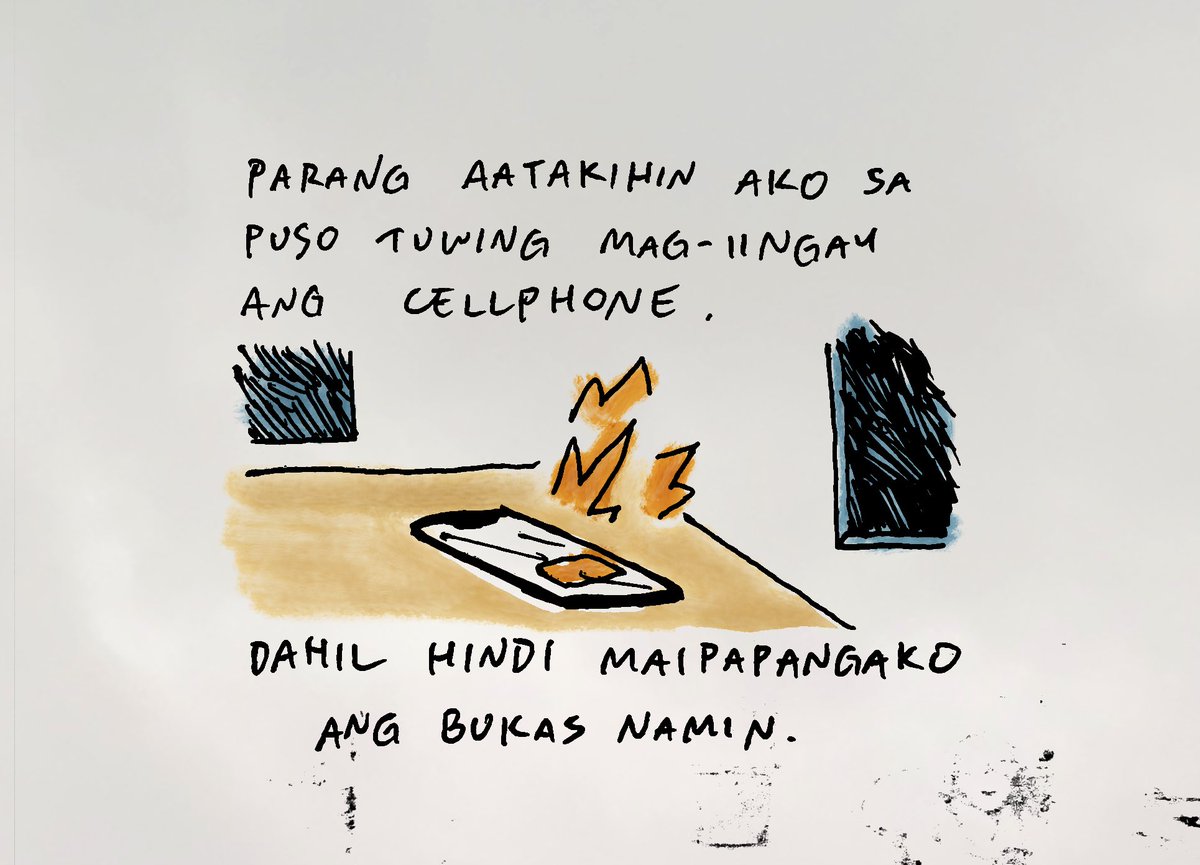 PARANG AATAKIHIN AKO SA
PUSO TUWING MAG-IINGAY
ANG CELLPHONE.
DAHIL HINDI MAIPAPANGAKO
ANG BUKAS NAMIN.